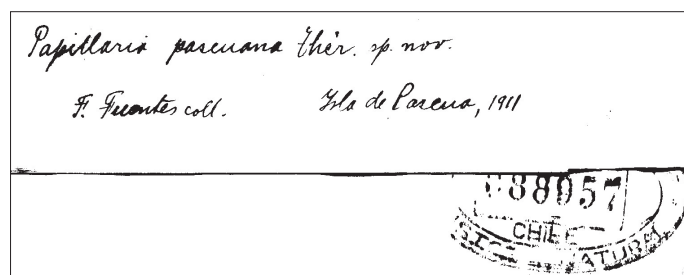 Papillaria pascuana Thér. sp. nov.
F. Fuentes coll. Isla de Pascua, 1911
088057
CHILE